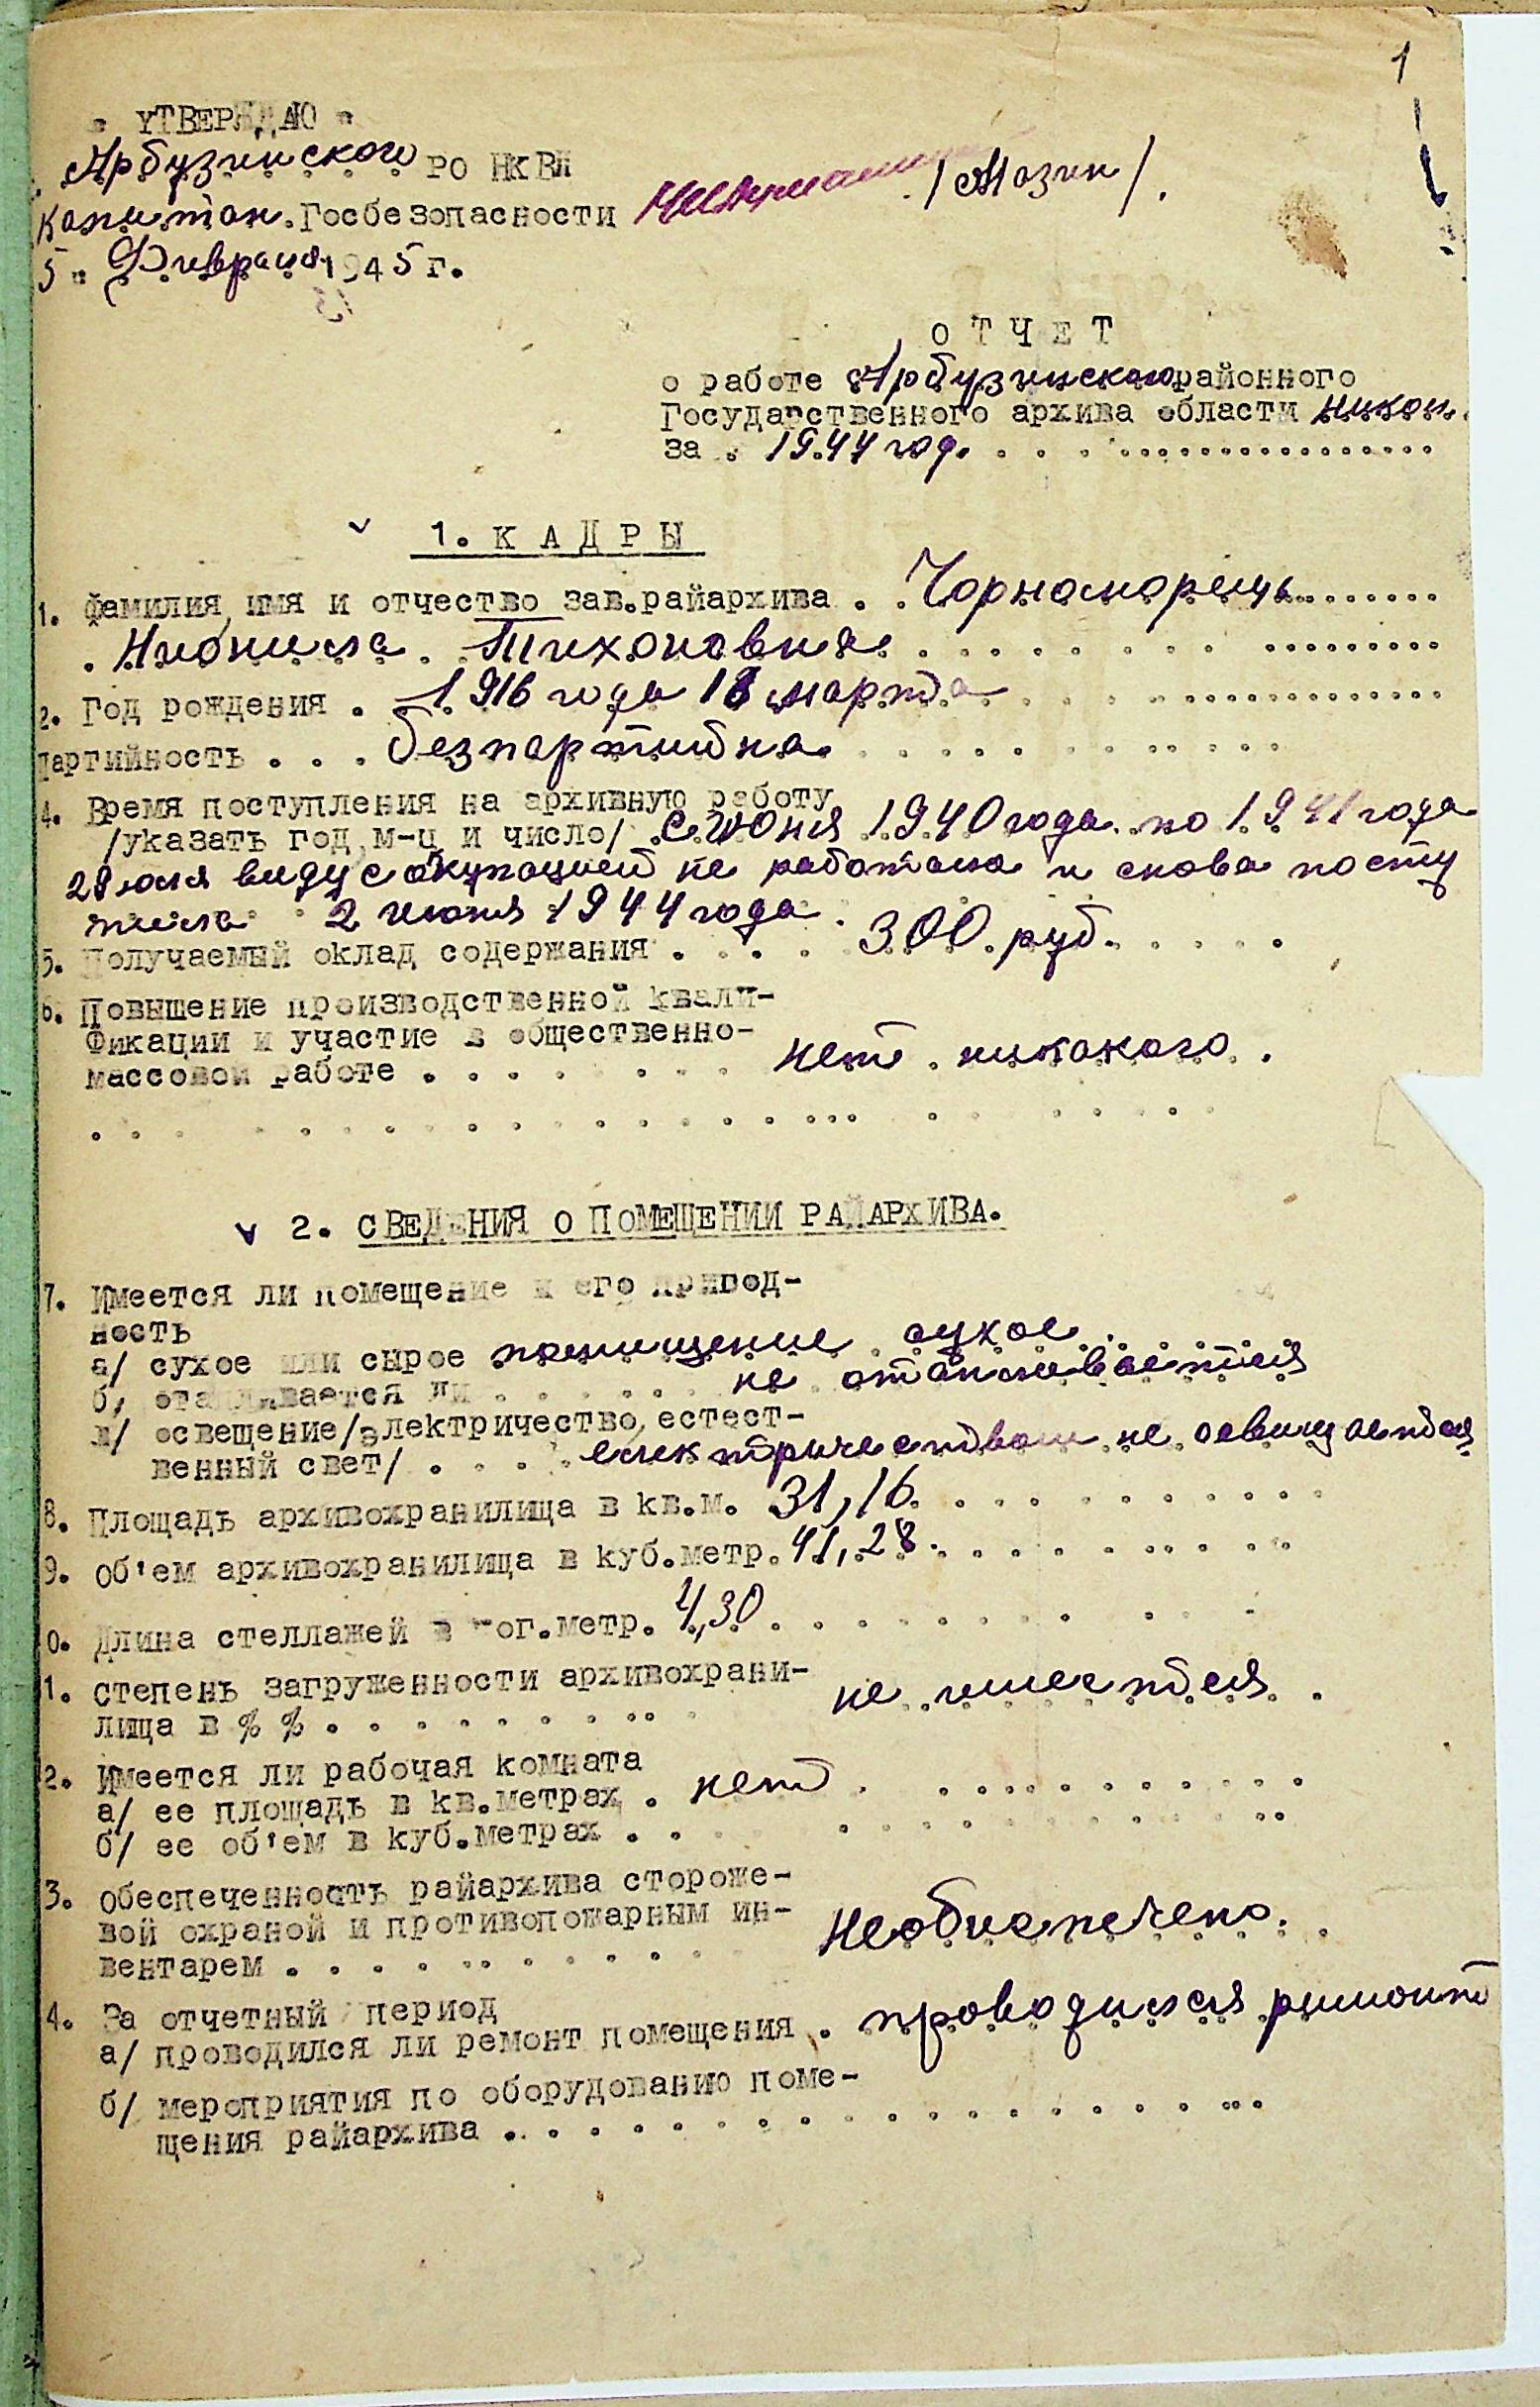 1
" УТВЕРЖДАЮ "
Арбузинского РО НКВД
капитан Госбезопасности /Мазин/.
5 " Февраля 1945 г.
О Т Ч Е Т
о работе Арбузинского районного
Государственного архива области Никол.
за . 1944 год. . . . . . . . . . . . . . . . . . .
1. К А Д Р Ы
1. Фамилия, имя и отчество зав.райархива . . Чорноморець. . . . . . .
. Нионила. Тихоновна. . . . . . . . . . . . . . . . . .
2. Год рождения . 1916 года 18 марта . . . . . . . . . . . . . . . . .
партийность . . . безпартийна. . . . . . . . . . . .
4. Время поступления на архивную работу
/указать год, м-ц и число/ . с июня 1940 года. по 1941 года
28 юля виду с окупацией не работала и снова посту
пила 2 июня 1944 года.
5. Получаемый оклад содержания . . . . 300 руб. . . . . .
6. Повышение производственной квали-
фикации и участие в общественно-
массовой работе . . . . . . . . нет никакого .
. . . . . . . . . . . . . . . . . . . . . . . . . . . .
2. СВЕДЕНИЯ О ПОМЕЩЕНИИ РАЙАРХИВА.
7. Имеется ли помещение и его пригод-
ность
а/ сухое или сырое помищение сухое .
б/ отапливается ли . . . . . . не отапливается
в/ освещение/электричество, естест-
венный свет/ . . . . електричеством не освищается
8. Площадь архивохранилища в кв.м. 31,16. . . . . . . . . . .
9. Об'ем архивохранилища в куб.метр. 41,28. . . . . . . . . .
0. Длина стеллажей в пог.метр. 4,30 . . . . . . . . . . .
1. Степень загруженности архивохрани-
лища в % % . . . . . . . . . . не имеется .
2. Имеется ли рабочая комната
а/ ее площадь в кв.метрах . нет . . . . . . . . . . . .
б/ ее об'ем в куб.метрах . . . . . . . . . . . . .
3. Обеспеченность райархива стороже-
вой охраной и противопожарным ин-
вентарем . . . . . . . . . . . необиспечено. .
4. За отчетный период
а/ проводился ли ремонт помещения . проводился римонт
б/ мероприятия по оборудованию поме-
щения райархива . . . . . . . . . . . . . . . . . . . .